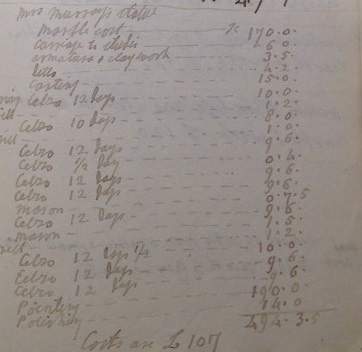 Mrs Murray's statue
Marble cost 170.0.
Carriage to studio 6.0
armature & clay work 3.5.
4.2
Casting 15.0
Celzo 12 days 10.0
1.2
Celzo 10 days 8.0
1.0
Celzo 12 days 9.6
Celzo 1/2 day 0.4
Celzo 12 days 9.6
Celzo 12 days 9.6
Mason 0.7.5
Celzo 12 days 9.6
Mason 1.5
1.2
Celzo 12 days 1/2 10.0
Celzo 12 days 9.6
Celzo 12 days 9.6
Pointing 190.0
Polishing 14.0
494.3.5
Costs are £107